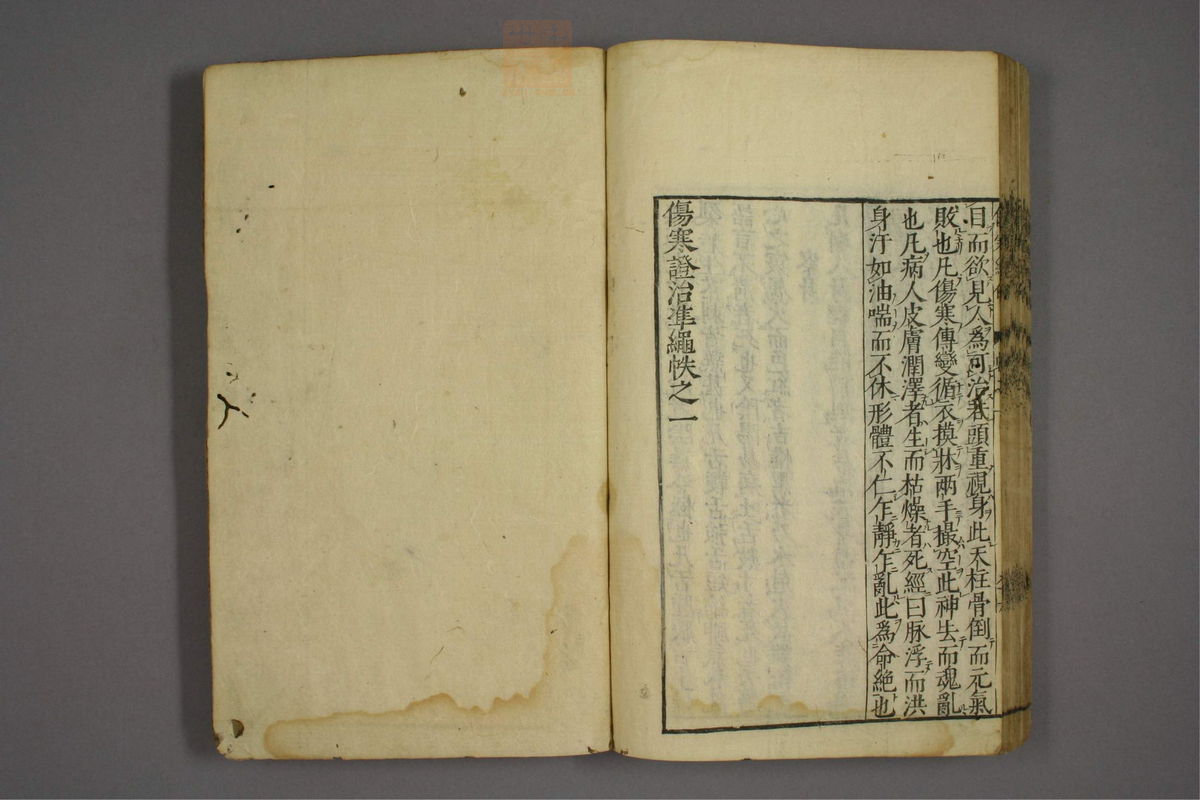 目而欲見人為可治若頭重視身此天柱骨倒而元氣
敗也凡傷寒傳變循衣摸牀兩手撮空此神去而魂亂
也凡病人皮膚潤澤者生而枯燥者死經曰脉浮而洪
身汗如油喘而不休形體不仁乍靜乍亂此為命絶也
傷寒證治準繩帙之一